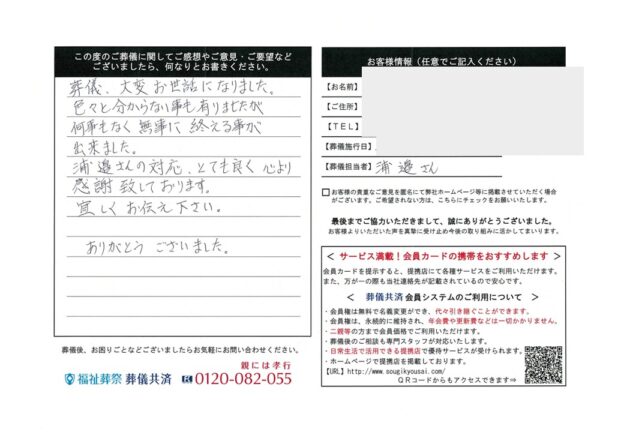 この度のご葬儀に関してご感想やご意見・ご要望など
ございましたら、何なりとお書きください。
葬儀、大変お世話になりました。
色々と分からない事も有りましたが
何事もなく無事に終える事が
出来ました。
浦邉さんの対応、とても良く心より
感謝致しております。
宜しくお伝え下さい。
ありがとうございました。
葬儀後、お困りごとなどございましたらお気軽にお問い合わせください。
親には孝行
福祉葬祭 葬儀共済 0120-082-055
お客様情報（任意でご記入ください）
【お名前】
【ご住所】
【TEL】
【葬儀施行日】
【葬儀担当者】浦邉さん
□お客様の貴重なご意見を匿名にて弊社ホームページ等に掲載させていただく場合
がございます。ご希望されない方は、こちらにチェックをお願いいたします。
最後までご協力いただきまして、誠にありがとうございました。
お客様よりいただいた声を真摯に受け止め今後の取り組みに活かしてまいります。
＜ サービス満載！会員カードの携帯をおすすめします ＞
会員カードを提示すると、提携店にて各種サービスをご利用いただけます。
また、万が一の際も当社連絡先が記載されているので安心です。
＜ 葬儀共済 会員システムのご利用について ＞
・会員権は無料で名義変更ができ、代々引き継ぐことができます。
・会員権は、永続的に維持され、年会費や更新費などは一切かかりません。
・二親等の方まで会員価格でご利用いただけます。
・葬儀後のご相談も専門スタッフが対応いたします。
・日常生活で活用できる提携店で優待サービスが受けられます。
・ホームページで提携店を掲載しております。
【URL】http://www.sougikyousai.com/
QRコードからもアクセスできます⇒